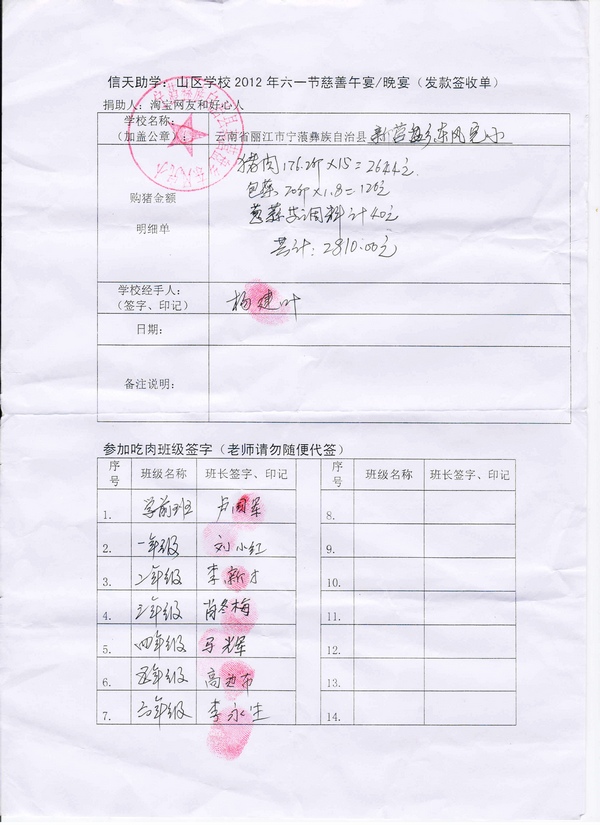 信天助学：山区学校2012年六一节慈善午宴/晚宴（发款签收单）
捐助人：淘宝网友和好心人
学校名称：
（加盖公章）：
云南省丽江市宁蒗彝族自治县 新营盘乡东风完小
购猪金额
明细单
猪肉176.2斤×15=2644元
包菜70斤×1.8=126元
调料计40元
共计：2810.00元
学校经手人：
（签字、印记）
杨建叶
日期：
备注说明：
参加吃肉班级签字（老师请勿随便代签）
序号 班级名称 班长签字、印记 序号 班级名称 班长签字、印记
1. 学前班 卢国军 8.
2. 一年级 刘小红 9.
3. 二年级 李新才 10.
4. 三年级 肖冬梅 11.
5. 四年级 马光辉 12.
6. 五年级 高 13.
7. 六年级 李永生 14.